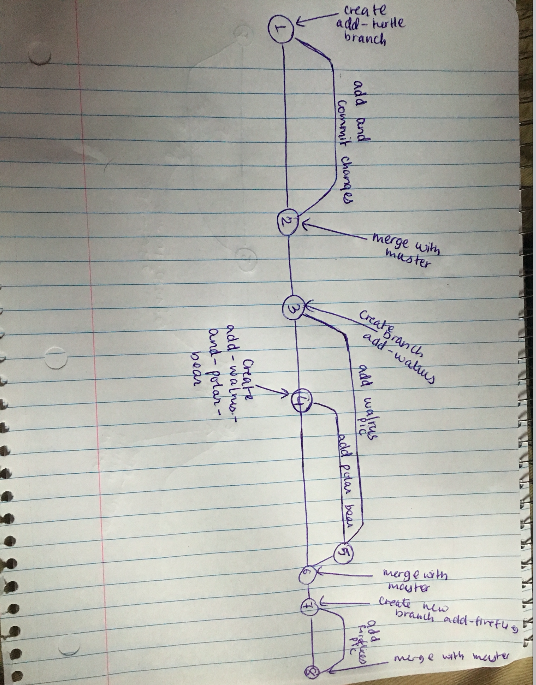 1
create
add-turtle
branch
add and
commit changes
2
merge with
master
3
create
branch
add-walrus
add walrus
pic
4
create
add-walrus-
and-polar-
bear
add polar bear
5
6
merge with
master
7
create new
branch add-fireflies
add
fireflies
pic
8
merge with master